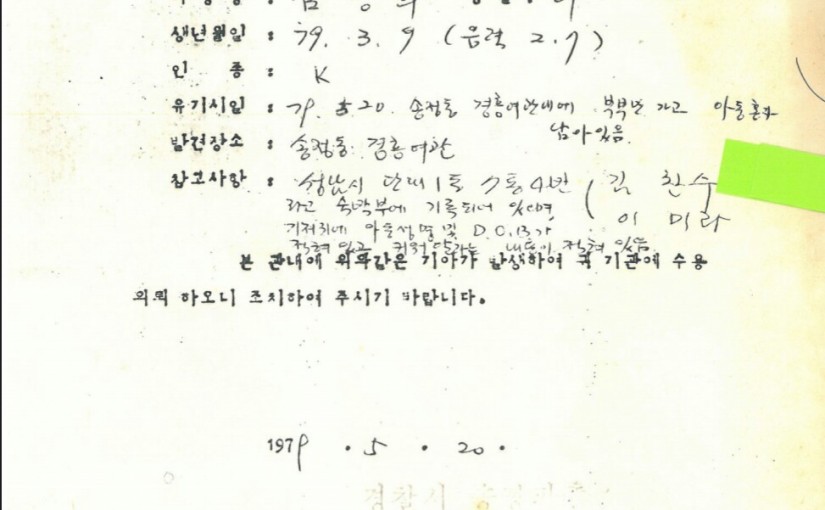 생년월일 : 79. 3. 9 (음력 2.7)
인 종 : K
유기시일 : 79. 5. 20. 송정동 경흥여관내에 부부만 가고 아동혼자
남아있음
발견장소 : 송정동 경흥여관
참고사항 : 성남시 단대1동 7통4반 ( 김찬수
라고 숙박부에 기록되어 있으며 이미라
기저귀에 아동성명 및 D.O.B가
적혀 있고 키워달라는 내용이 적혀 있음
본 관내에 위와같은 기아가 발생하여 귀 기관에 수용
의뢰 하오니 조치하여 주시기 바랍니다.
1979 . 5 . 20 .